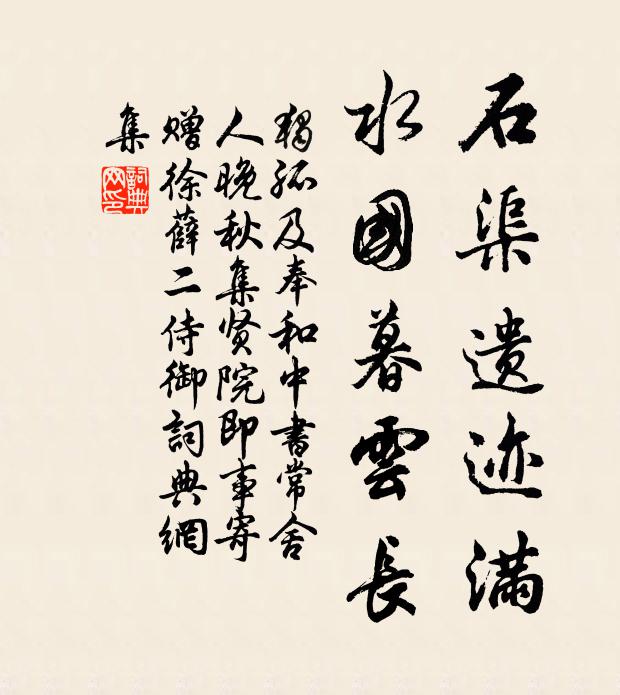 石渠遺迹满
水國暮雲長
獨孤及奉和中書常舍
人晚秋集贤院即事寄
赠徐薛二侍御詞典網
集
詞典
网印